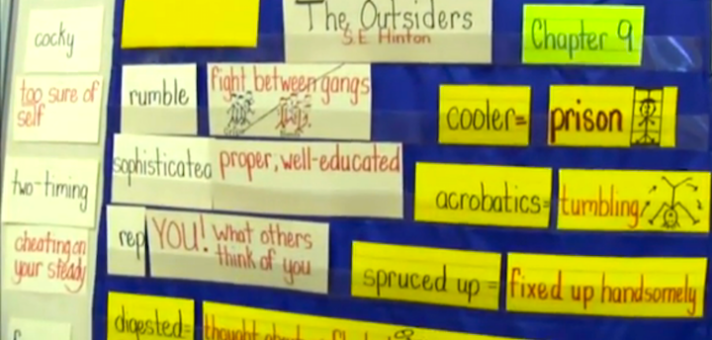 The Outsiders
S.E. Hinton
Chapter 9
cocky
too sure of
self
two-timing
cheating on
your steady
rumble
fight between gangs
sophisticated proper, well-educated
rep YOU! What others
think of you
digested=
cooler= prison
acrobatics= tumbling
spruced up = fixed up handsomely